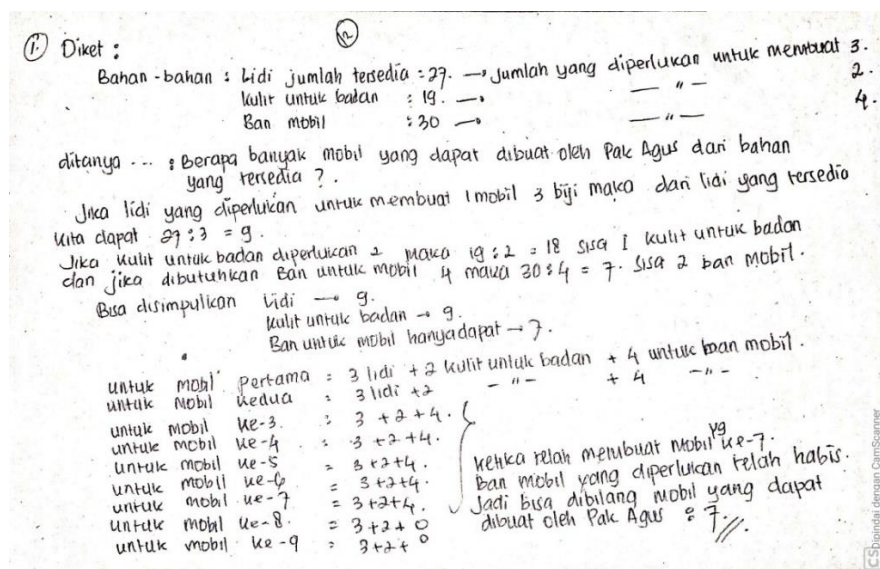 1. Diket :
12
Bahan-bahan : Lidi jumlah tersedia : 27. → Jumlah yang diperlukan untuk membuat 3.
Kulit untuk badan : 19. → — " — 2.
Ban mobil : 30 → — " — 4.
ditanya ... : Berapa banyak mobil yang dapat dibuat oleh Pak Agus dari bahan
yang tersedia ?.
Jika lidi yang diperlukan untuk membuat 1 mobil 3 biji maka dari lidi yang tersedia
kita dapat 27 : 3 = 9.
Jika kulit untuk badan diperlukan 2 maka 19 : 2 = 18 sisa 1 kulit untuk badan
dan jika dibutuhkan Ban untuk mobil 4 maka 30 : 4 = 7. sisa 2 ban mobil.
Bisa disimpulkan Lidi → 9.
kulit untuk badan → 9.
Ban untuk mobil hanya dapat → 7.
untuk mobil pertama = 3 lidi + 2 kulit untuk badan + 4 untuk ban mobil.
untuk mobil kedua : 3 lidi + 2 - " - + 4 - " -
untuk mobil ke-3. : 3 + 2 + 4.
untuk mobil ke-4 : 3 + 2 + 4.
untuk mobil ke-5 = 3 + 2 + 4.
untuk mobil ke-6 = 3 + 2 + 4.
untuk mobil ke-7 = 3 + 2 + 4.
untuk mobil ke-8. = 3 + 2 + 0
untuk mobil ke-9 : 3 + 2 + 0
ketika telah membuat mobil yg ke-7.
ban mobil yang diperlukan telah habis.
Jadi bisa dibilang mobil yang dapat
dibuat oleh Pak Agus : 7.
CS Dipindai dengan CamScanner